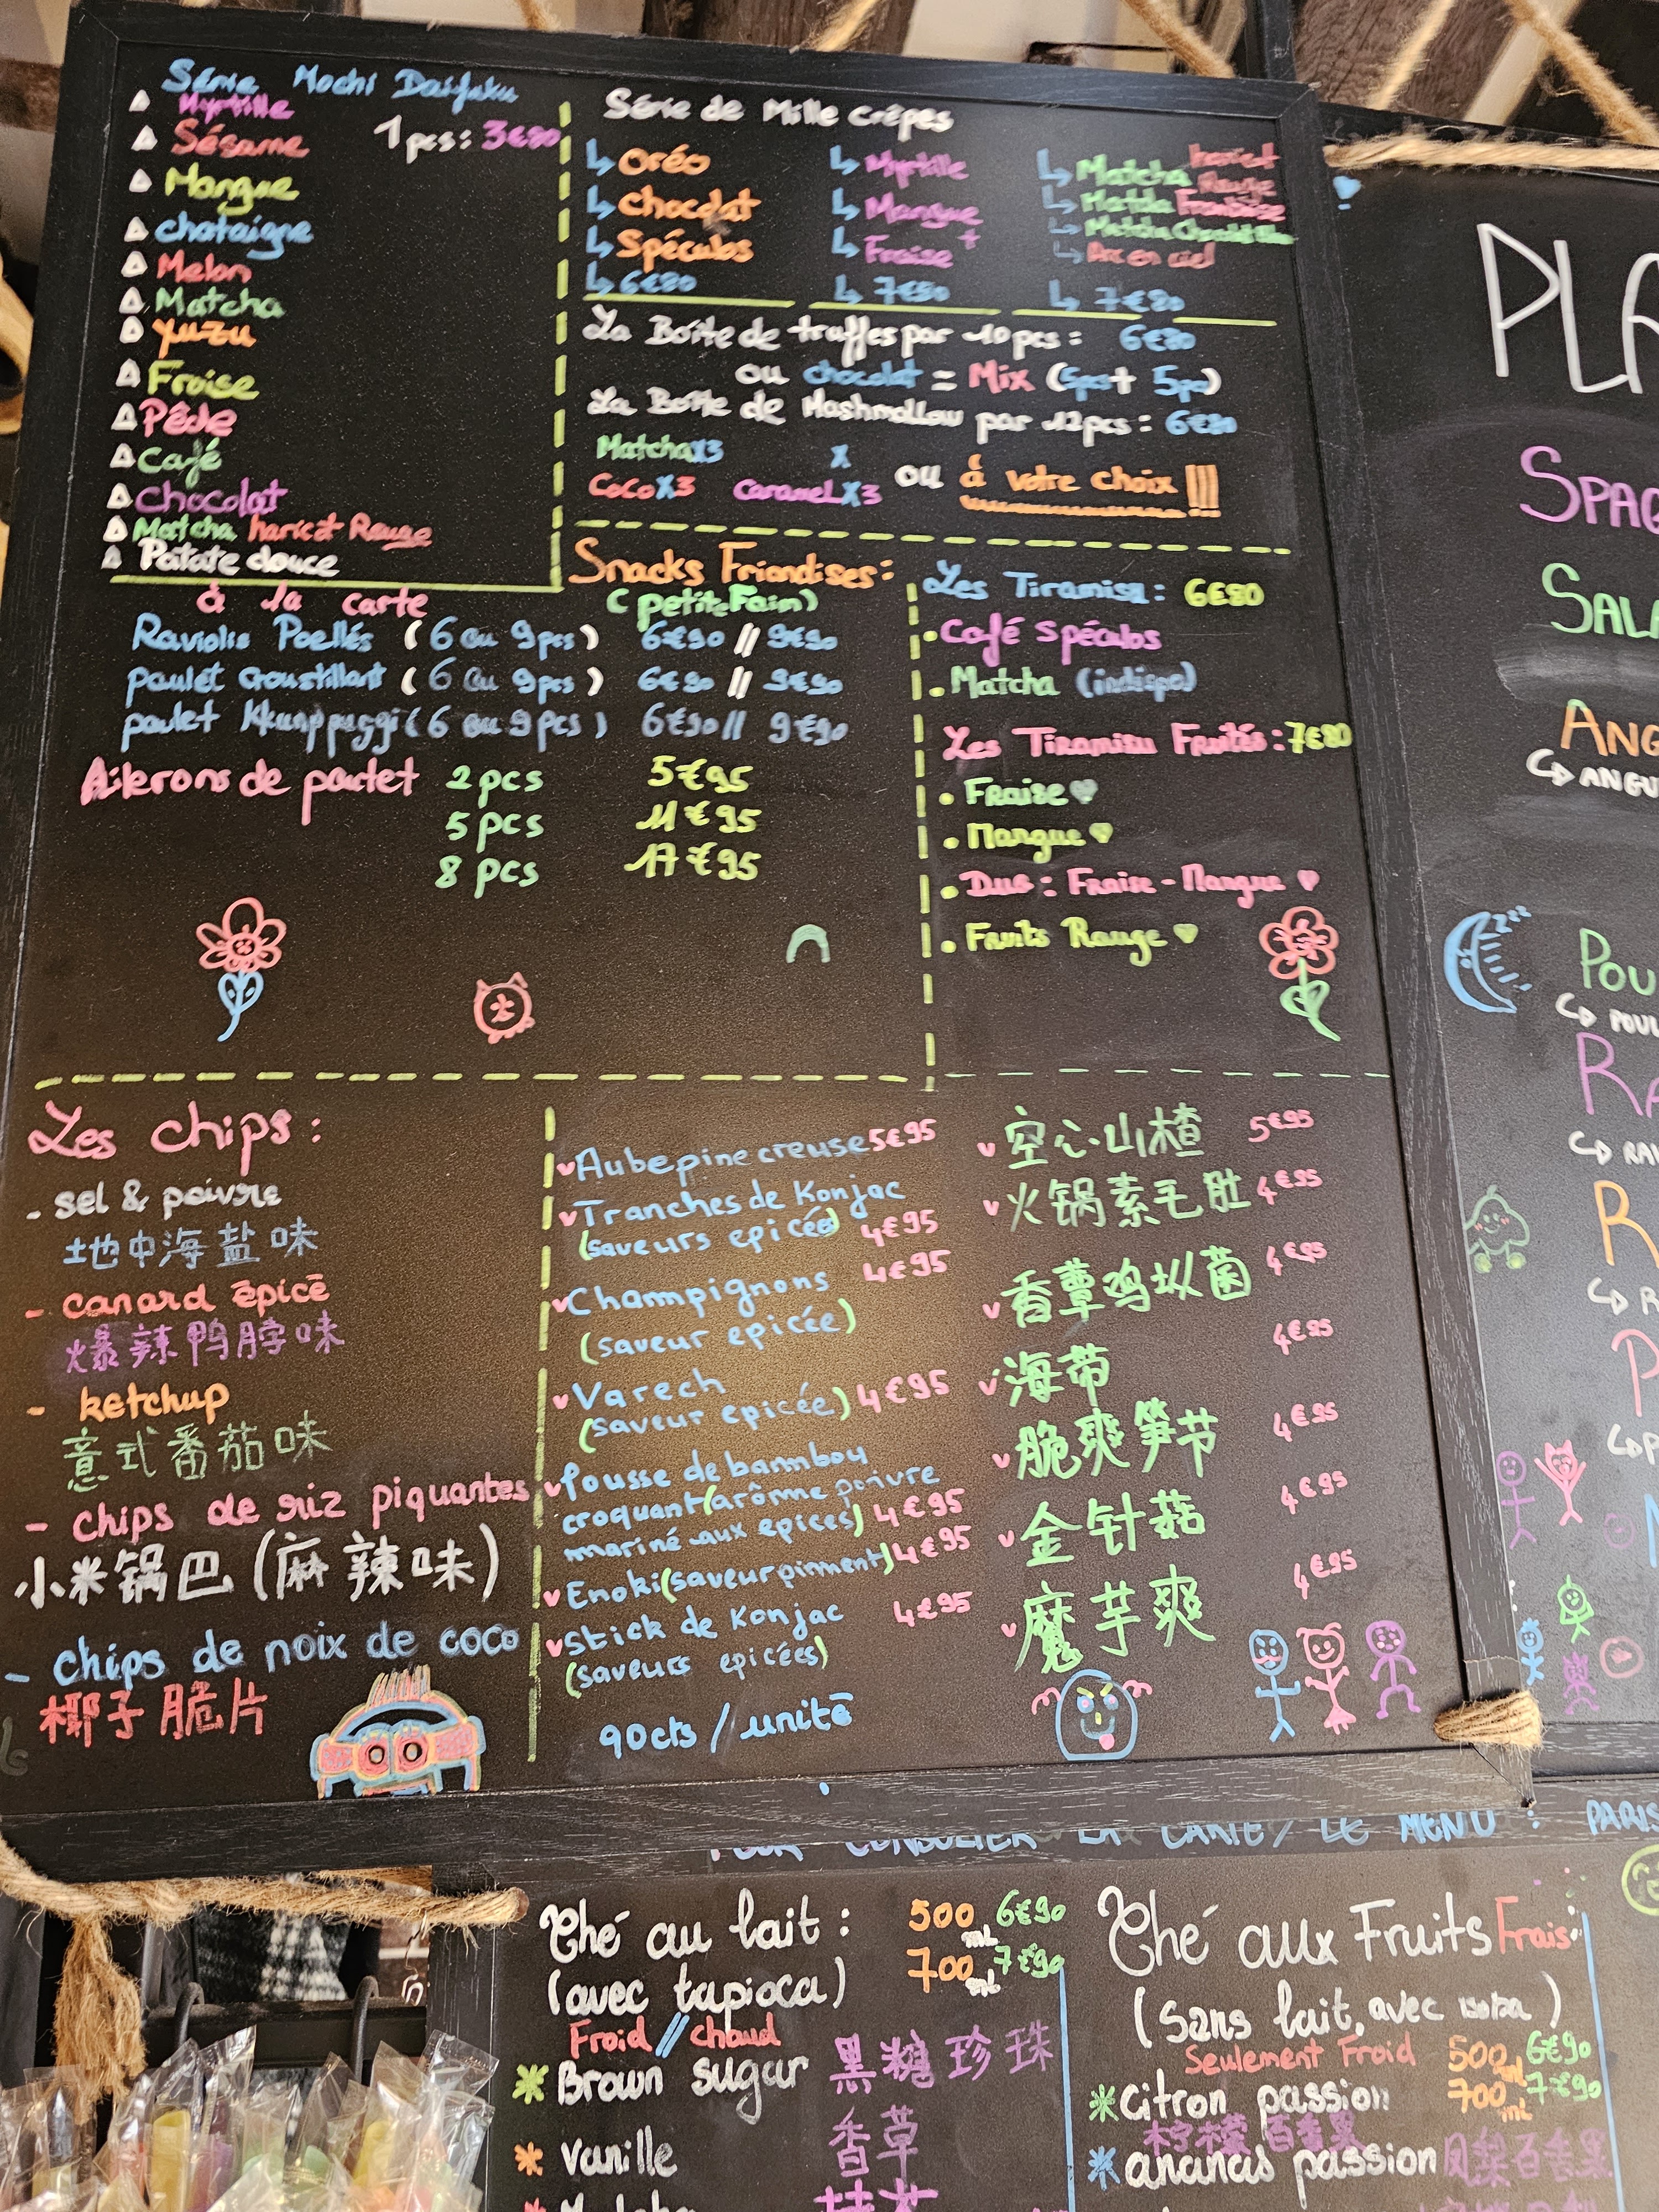 Série Mochi Daifuku
Myrtille
1 pcs : 3€80
Sésame
Mangue
chataigne
Melon
Matcha
Yuzu
Fraise
Pêche
Café
Chocolat
Matcha haricot Rouge
Patate douce
Série de Mille crêpes
Oréo
Chocolat
Spéculos
6€80
Myrtille
Mangue
Fraise
7€50
Matcha haricot Rouge
Matcha Framboise
Matcha Chocolat
Arc en ciel
7€80
La Boîte de truffes par 10 pcs : 6€80
ou chocolat = Mix (5pcs + 5pc)
La Boîte de Mashmallow par 12pcs : 6€80
Matcha x3
Coco x3 Caramel x3 ou à votre choix !!!
à la carte
Snacks Friandises :
(petite Faim)
Raviolis Poellés (6 ou 9 pcs) 6€90 // 9€90
poulet croustillant (6 ou 9pcs) 6€90 // 9€90
poulet (6 ou 9 pcs) 6€90 // 9€90
Ailerons de poulet 2 pcs 5€95
5 pcs 11€95
8 pcs 17€95
Les Tiramisu : 6€80
Café Spéculos
Matcha (indispo)
Les Tiramisu Fruités : 7€80
Fraise
Mangue
Duo : Fraise - Mangue
Fruits Rouge
Les chips :
- sel & poivre
地中海盐味
- canard épicé
爆辣鸭脖味
- ketchup
意式番茄味
- chips de riz piquantes
小米锅巴 (麻辣味)
- chips de noix de coco
椰子脆片
Aubepine creuse 5€95
Tranches de Konjac
(saveurs epicées) 4€95
Champignons 4€95
(saveur epicée)
Varech
(saveur epicée) 4€95
Pousse de bambou
croquant (arôme poivre
mariné aux epices) 4€95
Enoki (saveur pimment) 4€95
Stick de Konjac 4€95
(saveurs epicées)
90cts / unité
空心山楂 5€95
火锅素毛肚 4€95
香蕈鸡枞菌 4€95
海带 4€95
脆爽笋节 4€95
金针菇 4€95
魔芋爽 4€95
PLA
SPAG
SALA
ANG
ANGU
POU
POUL
RA
RAV
R
R
P
P
POUR CONSULTER LA CARTE / LE MENU : PARIS
Thé au lait : 500 mL 6€90
(avec tapioca) 700 mL 7€90
Froid // chaud
Brown sugar 黑糖珍珠
Vanille 香草
Matcha 抹茶
Thé aux Fruits Frais
(Sans lait, avec boba)
Seulement Froid 500 mL 6€90
Citron passion 700 mL 7€90
柠檬百香果
ananas passion 凤梨百香果